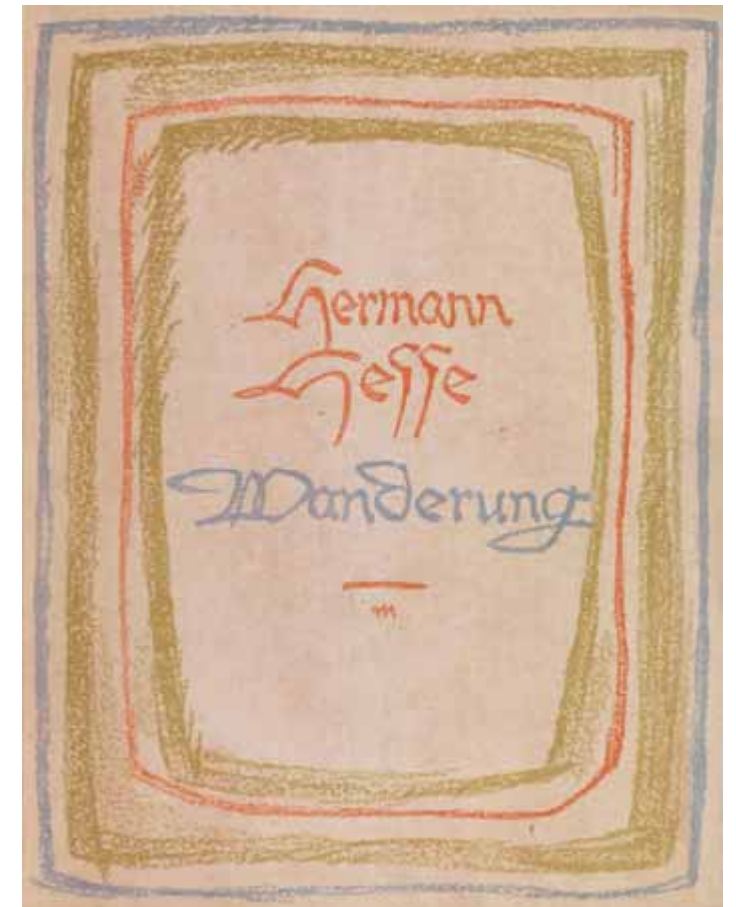 Hermann
Hesse
Wanderung